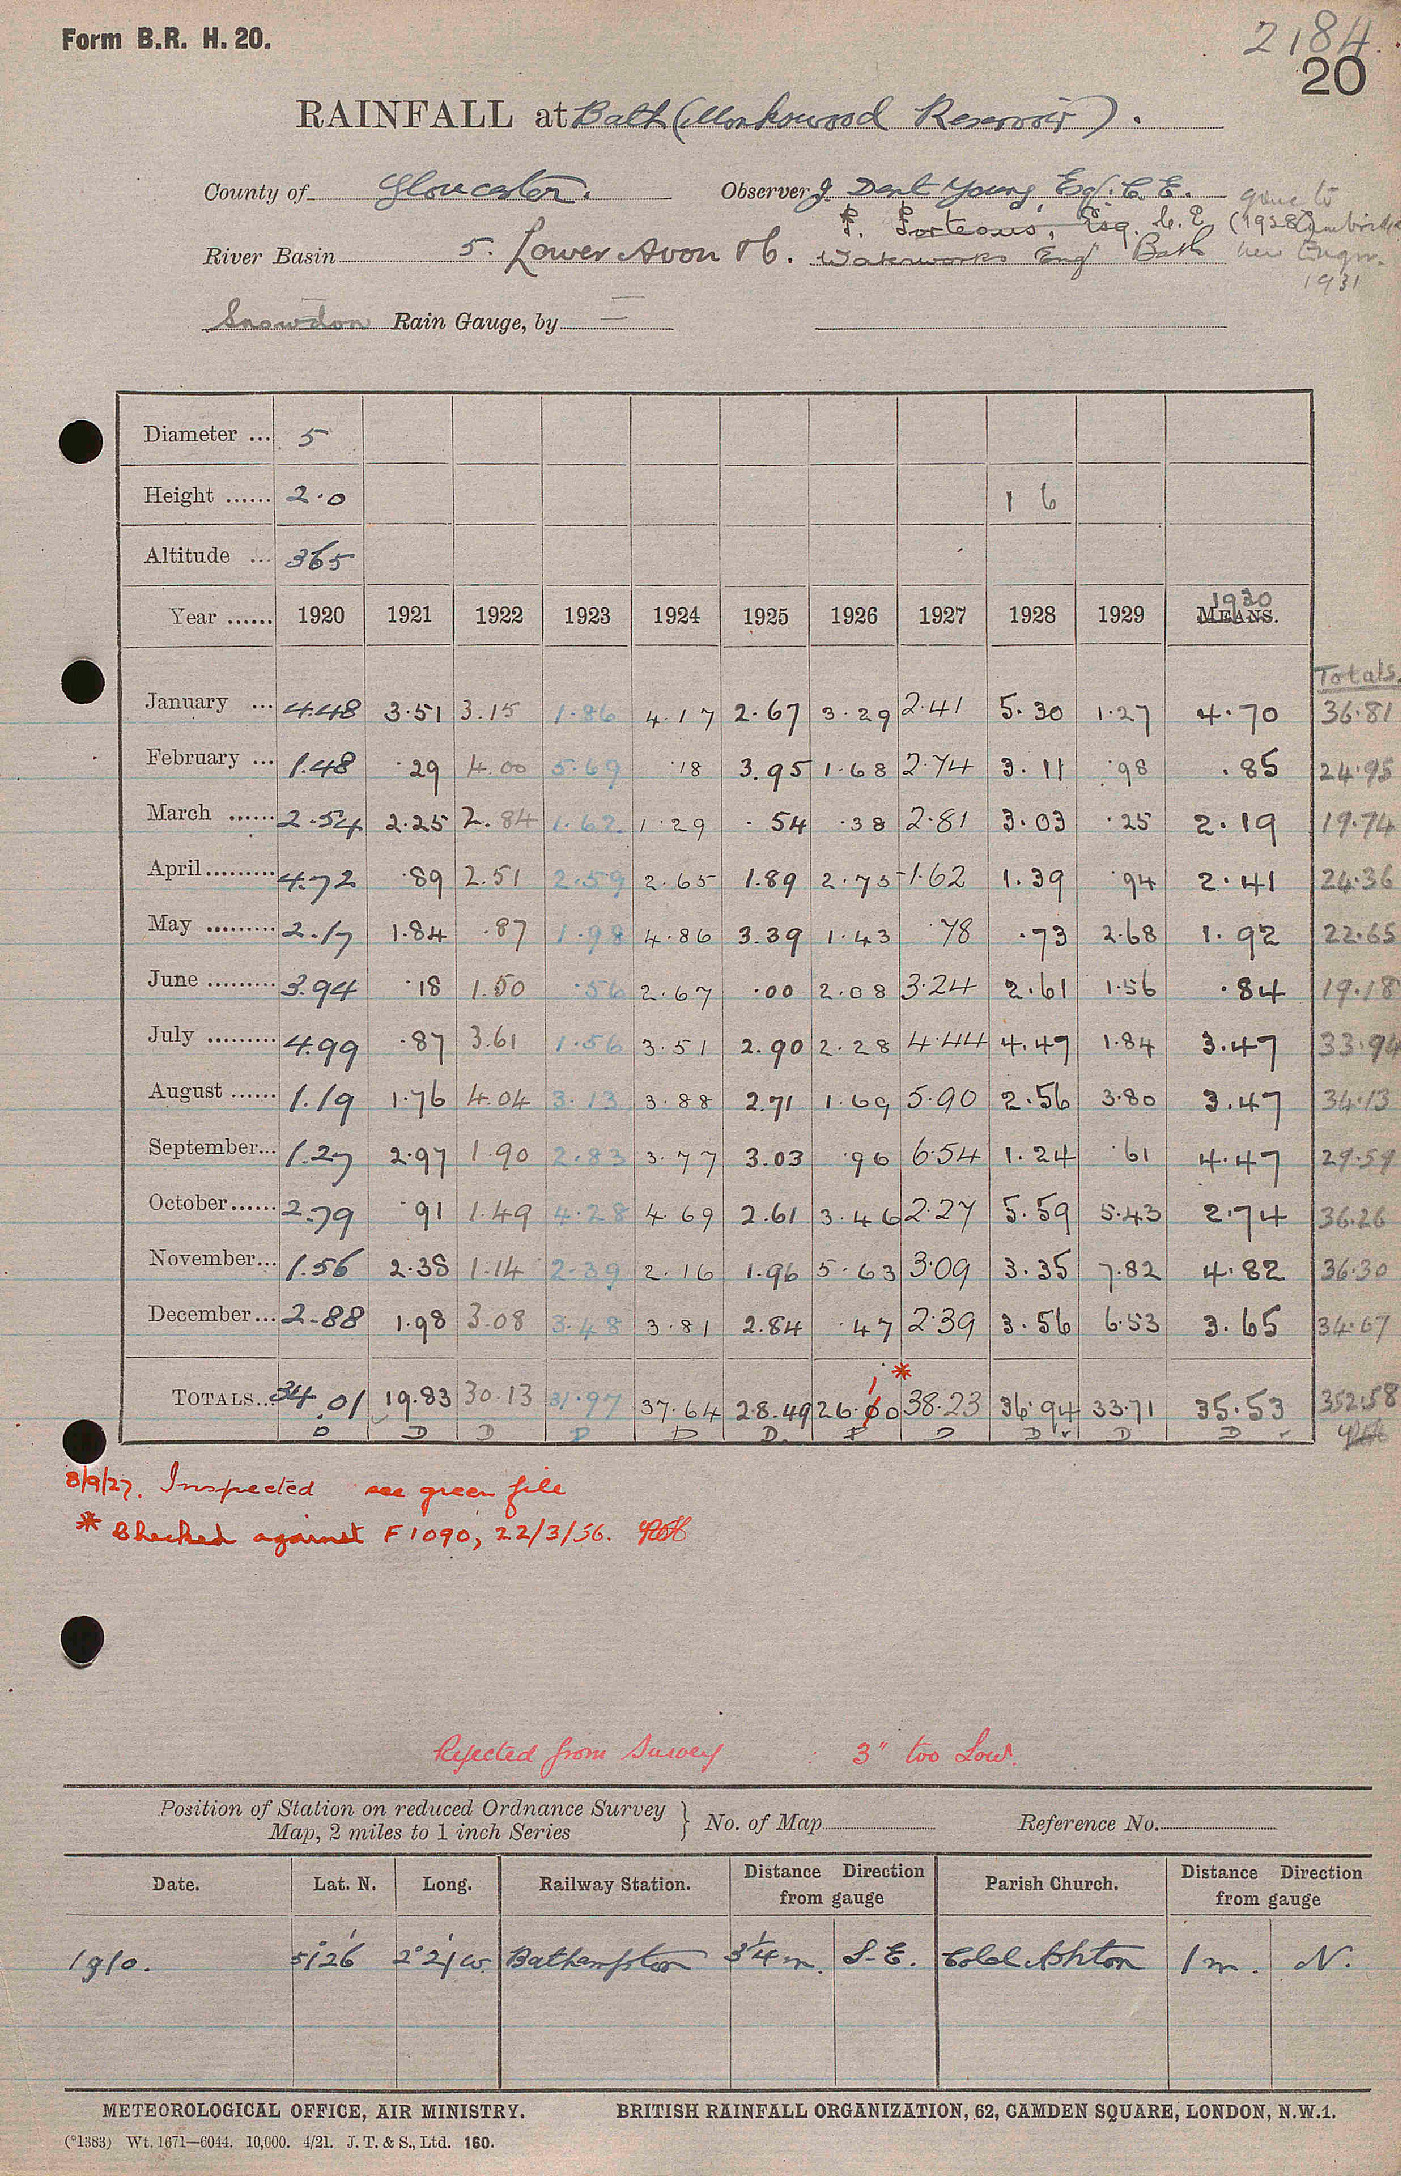 Form B.R. H. 20.
2184.
20
RAINFALL at Bath (Monkswood Reservoir).
County of Gloucester. Observer J. Dent Young, Esq. C.E.
gone to
P. Porteous, Esq. C.E. (1928)
River Basin 5. Lower Avon &c. Waterworks Engr Bath
new Engr.
1931
Snowdon Rain Gauge, by —
Diameter ... 5
Height ...... 2.0 1 6
Altitude ... 365
Year ...... 1920 1921 1922 1923 1924 1925 1926 1927 1928 1929 MEANS. 1930
Totals.
January ... 4.48 3.51 3.15 1.86 4.17 2.67 3.29 2.41 5.30 1.27 4.70 36.81
February ... 1.48 .29 4.00 5.69 .18 3.95 1.68 2.74 3.11 .98 .85 24.95
March ...... 2.54 2.25 2.84 1.62 1.29 .54 .38 2.81 3.03 .25 2.19 19.74
April ......... 4.72 .89 2.51 2.59 2.65 1.89 2.75 1.62 1.39 .94 2.41 24.36
May ......... 2.17 1.84 .87 1.98 4.86 3.39 1.43 .78 .73 2.68 1.92 22.65
June ......... 3.94 .18 1.50 .56 2.67 .00 2.08 3.24 2.61 1.56 .84 19.18
July ......... 4.99 .87 3.61 1.56 3.51 2.90 2.28 4.44 4.47 1.84 3.47 33.94
August ...... 1.19 1.76 4.04 3.13 3.88 2.71 1.69 5.90 2.56 3.80 3.47 34.13
September... 1.27 2.97 1.90 2.83 3.77 3.03 .96 6.54 1.24 .61 4.47 29.59
October...... 2.79 .91 1.49 4.28 4.69 2.61 3.46 2.27 5.59 5.43 2.74 36.26
November... 1.56 2.38 1.14 2.39 2.16 1.96 5.63 3.09 3.35 7.82 4.82 36.30
December... 2.88 1.98 3.08 3.48 3.81 2.84 .47 2.39 3.56 6.53 3.65 34.67
1 *
TOTALS... 34.01 19.83 30.13 31.97 37.64 28.49 26.00 38.23 36.94 33.71 35.53 352.58
D D D D D D F D D D D
8/9/27. Inspected see green file
* Checked against F1090, 22/3/56.
Rejected from Survey 3" too Low.
Position of Station on reduced Ordnance Survey
Map, 2 miles to 1 inch Series } No. of Map Reference No.
Date. Lat. N. Long. Railway Station. Distance Direction from gauge Parish Church. Distance Direction from gauge
1910. 51°26' 2°21' W. Bathampton 3¼ m. S.E. Cold Ashton 1 m. N.
METEOROLOGICAL OFFICE, AIR MINISTRY. BRITISH RAINFALL ORGANIZATION, 62, CAMDEN SQUARE, LONDON, N.W.1.
(*1383) Wt. 1671—6044. 10,000. 4/21. J. T. & S., Ltd. 160.